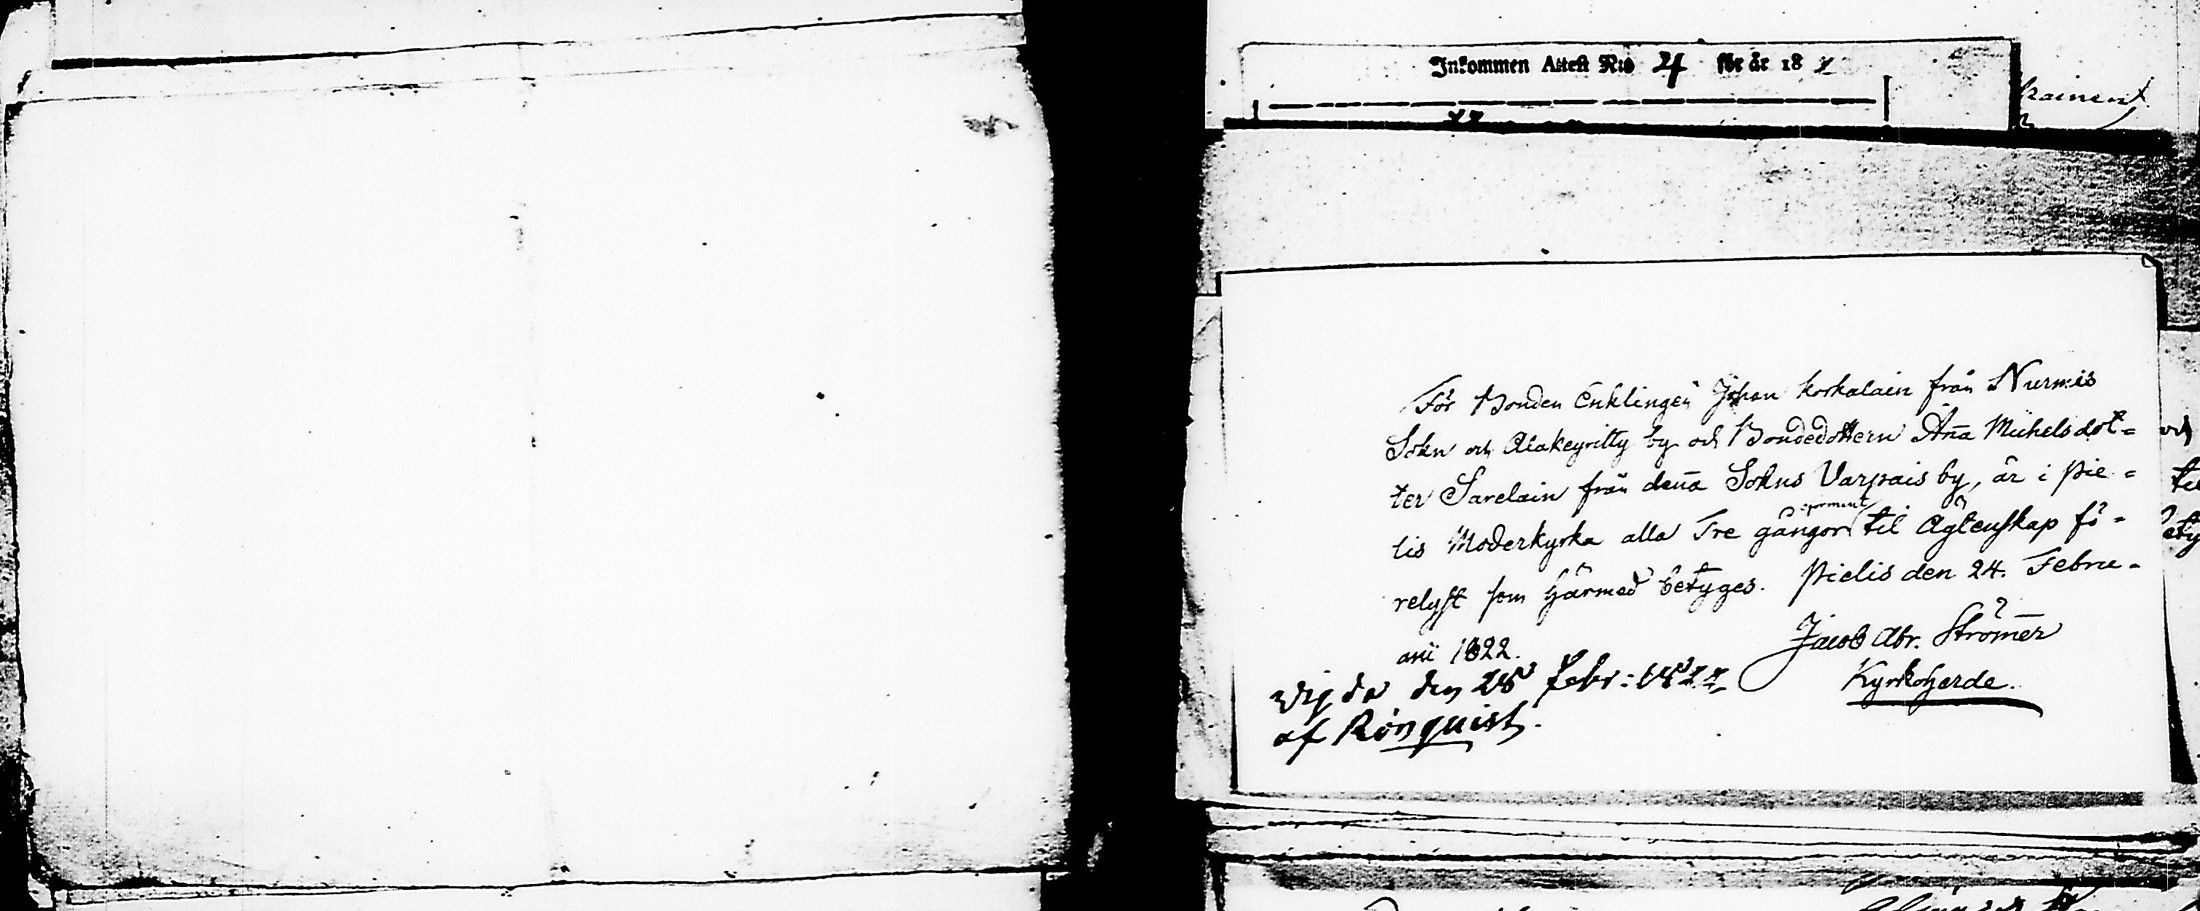 Inkommen Attest N:o 24 för år 18
För Bonden Enklingen Johan Korkalain från Nurmis
Sokn och Alakeyritty by och Bondedottern Aña Michelsdot=
ter Sarelain från deña Sokns Varpais by, är i Pie=
lis Moderkyrka alla Tre gångor til Ägtenskap fö=
relyst som härmed betyges. Pielis den 24. Febru=
arii 1822.
Jacob Abr. Strömer
Kyrkoherde.
Vigda den 25 Febr: 1822
af Rönquist.